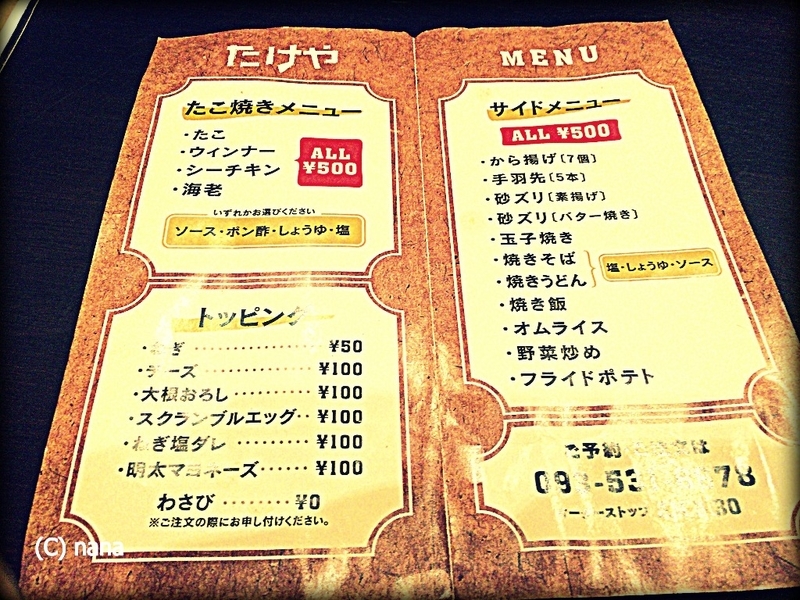 たけや
たこ焼きメニュー
・たこ
・ウィンナー
・シーチキン
・海老
ALL
¥500
いずれかお選びください
ソース・ポン酢・しょうゆ・塩
トッピング
・ねぎ ¥50
・チーズ ¥100
・大根おろし ¥100
・スクランブルエッグ ¥100
・ねぎ塩ダレ ¥100
・明太マヨネーズ ¥100
わさび ¥0
※ご注文の際にお申し付けください。
MENU
サイドメニュー
ALL ¥500
・から揚げ〔7個〕
・手羽先〔5本〕
・砂ズリ〔素揚げ〕
・砂ズリ〔バター焼き〕
・玉子焼き
・焼きそば
・焼きうどん
塩・しょうゆ・ソース
・焼き飯
・オムライス
・野菜炒め
・フライドポテト
ご予約
(C) nana